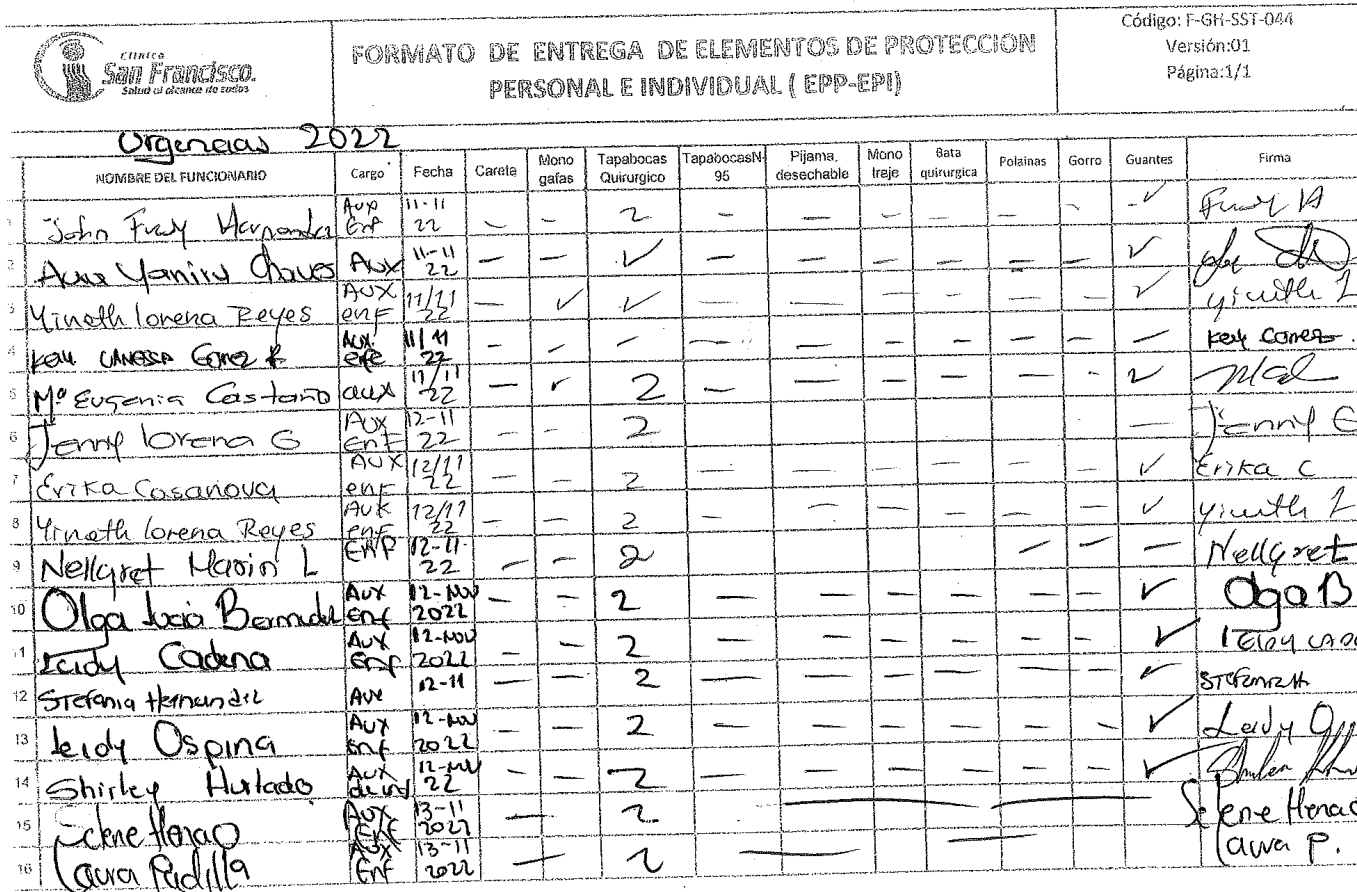 Clínica
San Francisco.
Salud al alcance de todos
FORMATO DE ENTREGA DE ELEMENTOS DE PROTECCION
PERSONAL E INDIVIDUAL ( EPP-EPI)
Código: F-GH-SST-044
Versión:01
Página:1/1
Urgencias 2022
NOMBRE DEL FUNCIONARIO Cargo Fecha Careta Mono gafas Tapabocas Quirurgico TapabocasN-95 Pijama, desechable Mono traje Bata quirurgica Polainas Gorro Guantes Firma
1 John Fredy Hernandez Aux Enf 11-11 22 - - 2 - - - - - - ✓ Fredy H
2 Yamiru Chaves Aux 11-11 22 - - ✓ - - - - - - ✓
3 Yineth lorena Reyes AUX enf 11/11 22 - ✓ ✓ - - - - - - ✓ Yineth L
4 Kelly VANESSA Gomez R Aux. enfe 11/11 22 - - - - - - - - - - Kelly Gomez.
5 Mª Eugenia Castaño aux 11/11 22 - ✓ 2 - - - - - - ✓
6 Jenny lorena G Aux Enf 12-11 22 2 - Jenny G
7 Erika Casanova AUX enf 12/11 22 - - 2 - - - - - - ✓ Erika C
8 Yineth lorena Reyes Aux enf 12/11 22 - - 2 - - - - - - ✓ Yineth L
9 Nellgret Marin L ENP 12-11- 22 - - 2 - - - Nellgret
10 Olga lucia Bermudez Aux Enf 12-Nov 2022 - - 2 - - - - - - ✓ Olga B
11 Leidy Cadena Aux Enf 12-Nov 2022 - - 2 - - - - - - ✓ Leidy
12 Stefania Hernandez Aux 12-11 - - 2 - - - - - - ✓ Stefania H
13 Leidy Ospina Aux Enf 12-Nov 2022 - - 2 - - - - - - ✓ Leidy
14 Shirley Hurtado Aux 12-Nov 22 - - 2 - - - - - - ✓
15 Selene Henao Aux Enf 13-11 2022 - 2 - - Selene Henao
16 Laura Padilla Aux Enf 13-11 2022 - 2 - - Laura P.